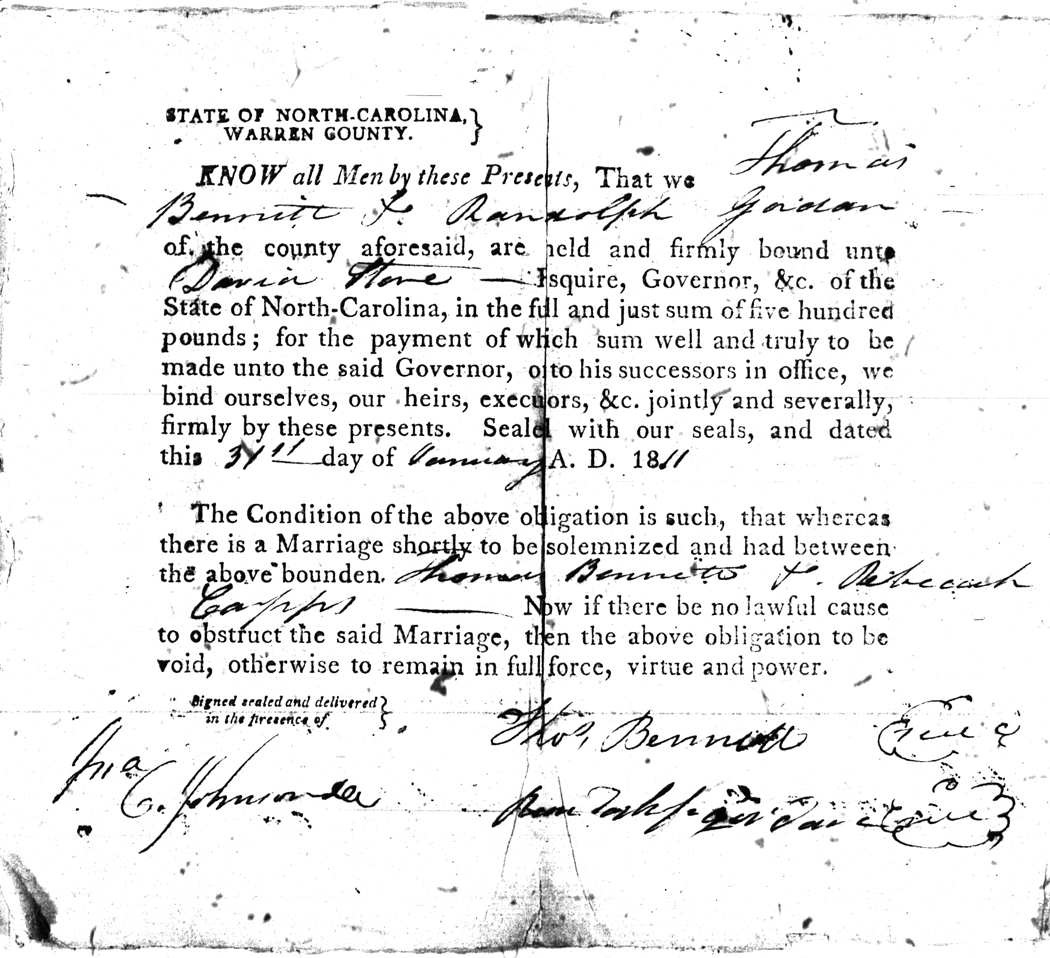 STATE OF NORTH-CAROLINA, }
WARREN COUNTY.
KNOW all Men by these Presents, That we Thomas
Bennett & Randolph Jordan
of the county aforesaid, are held and firmly bound unto
David Stone — Esquire, Governor, &c. of the
State of North-Carolina, in the full and just sum of five hundred
pounds; for the payment of which sum well and truly to be
made unto the said Governor, or to his successors in office, we
bind ourselves, our heirs, executors, &c. jointly and severally,
firmly by these presents. Sealed with our seals, and dated
this 31st day of January A. D. 1811
The Condition of the above obligation is such, that whereas
there is a Marriage shortly to be solemnized and had between
the above bounden. Thomas Bennett & Rebecah
Capps — Now if there be no lawful cause
to obstruct the said Marriage, then the above obligation to be
void, otherwise to remain in full force, virtue and power.
Signed sealed and delivered }
in the presence of
Thos. Bennett
Jna C. Johnson